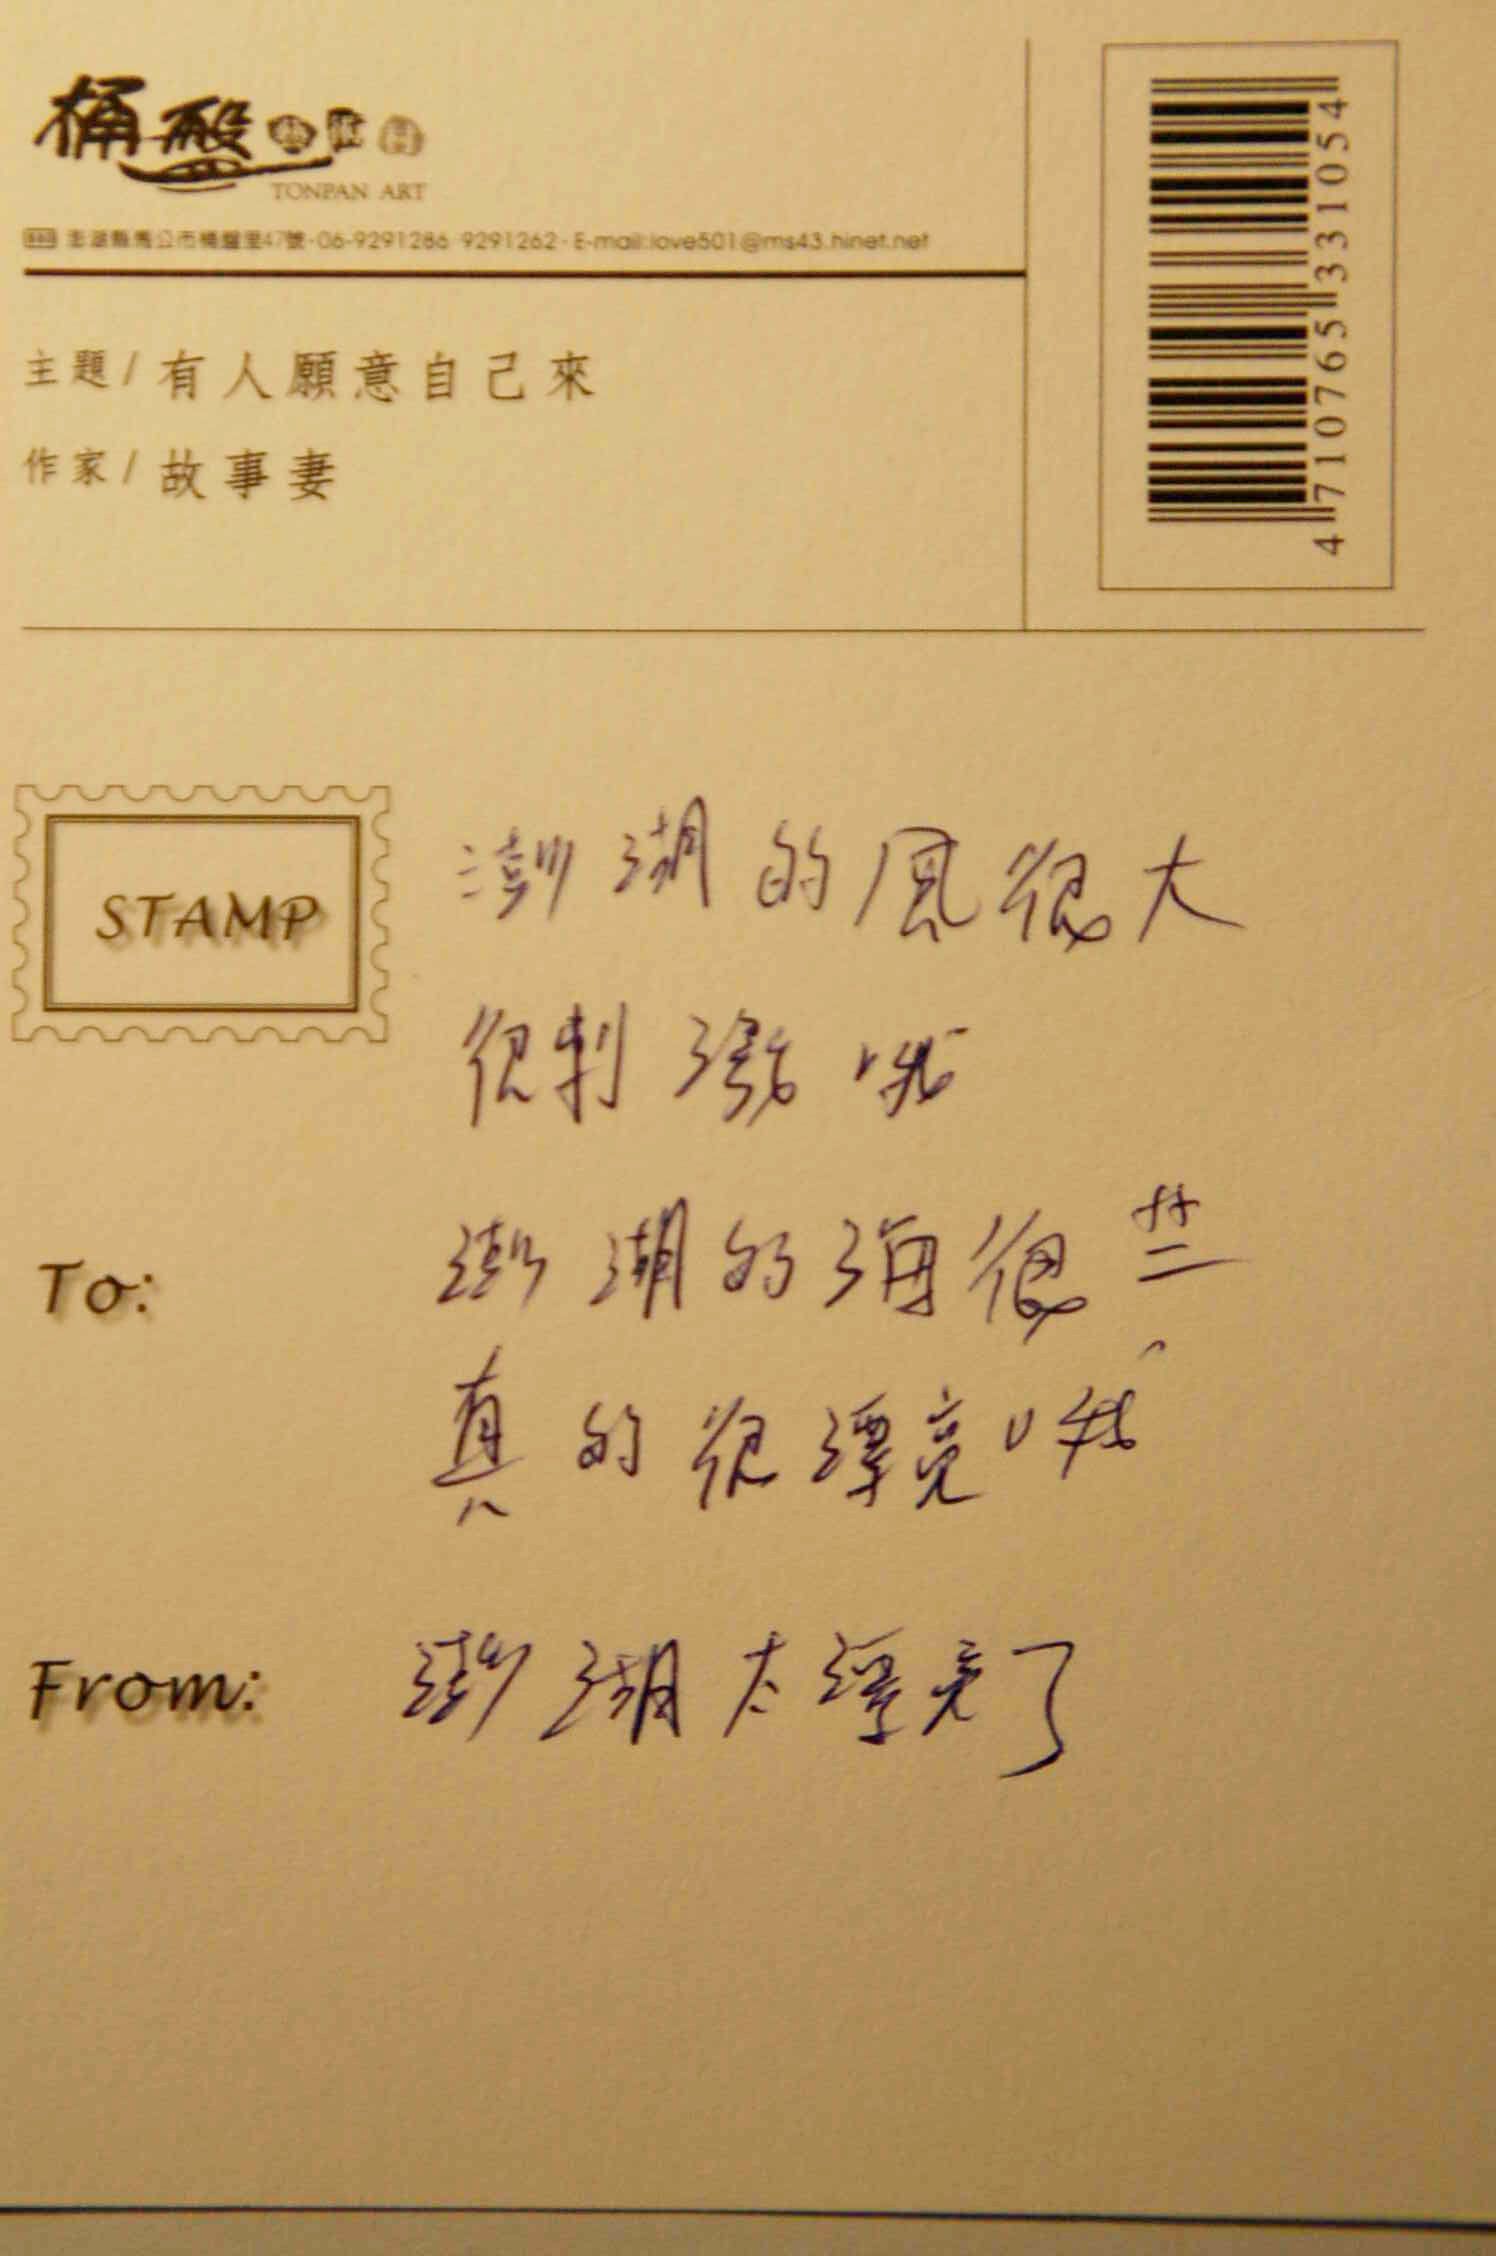 桶盤
TONPAN ART
澎湖縣馬公市桶盤里47號·06-9291286 9291262·E-mail:love501@ms43.hinet.net
主題/有人願意自己來
作家/故事妻
4 710765 331054
STAMP
澎湖的風很大
很刺激哦
To:
澎湖的海很
真的很漂亮哦
From:
澎湖太漂亮了